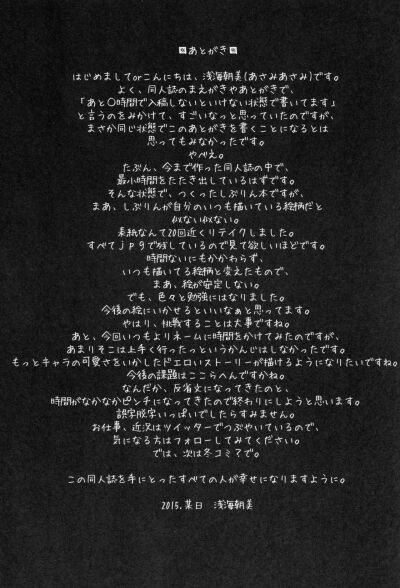 ■あとがき■
はじめましてorこんにちは、浅海朝美(あさみあさみ)です。
よく、同人誌のまえがきやあとがきで、
「あと〇時間で入稿しないといけない状態で書いてます」
と言うのをみかけて、すごいなっと思っていたのですが、
まさか同じ状態でこのあとがきを書くことになるとは
思ってもみなかったです。
やべえ。
たぶん、今まで作った同人誌の中で、
最小時間をたたき出しているはずです。
そんな状態で、つくったしぶりん本ですが、
まあ、しぶりんが自分のいつも描いている絵柄だと
似ない似ない。
表紙なんて20回近くリテイクしました。
すべてjpgで残しているので見て欲しいほどです。
時間ないにもかかわらず、
いつも描いてる絵柄と変えたもので、
まあ、絵が安定しない。
でも、色々と勉強にはなりました。
今後の絵にいかせるといいなぁと思ってます。
やはり、挑戦することは大事ですね。
あと、今回いつもよりネームに時間をかけてみたのですが、
あまりそこは上手く行ったっというかんじはしなかったです。
もっとキャラの可愛さをいかしたドエロいストーリーが描けるようになりたいですね。
今後の課題はここらへんですかね。
なんだか、反省文になってきたのと、
時間がなかなかピンチになってきたので終わりにしようと思います。
誤字脱字いっぱいでしたらすみません。
お仕事、近況はツイッターでつぶやいているので、
気になる方はフォローしてみてください。
では、次は冬コミで。
この同人誌を手にとったすべての人が幸せになりますように。
2015.某日 浅海朝美